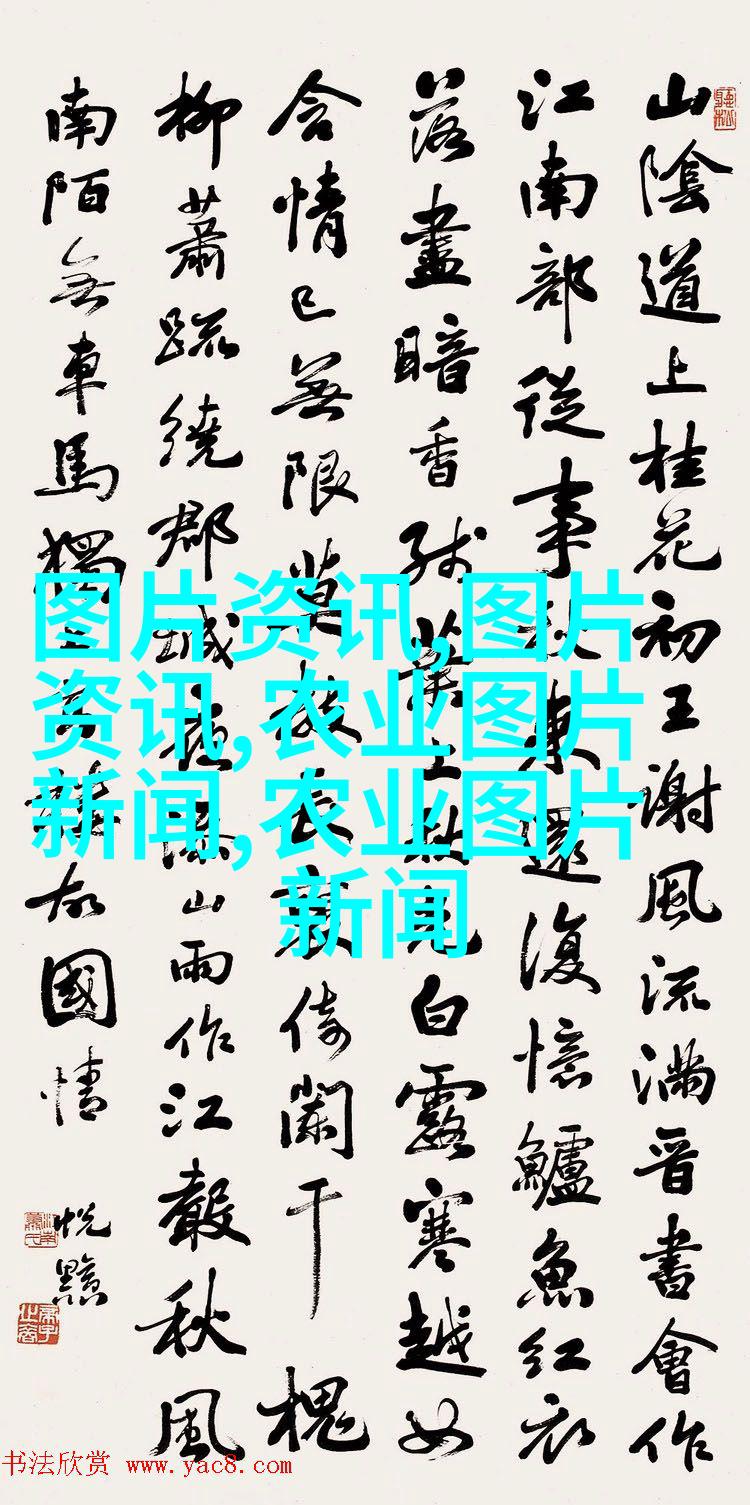 山陰道上桂花初王謝風流滿晉書會作
江南部從事秋來還復憶鱸魚紅衣
落盡暗香殘葉上秋光白露寒越女
含情已無限莫教長袖倚闌干槐
柳蕭疏繞郡城夜添山雨作江聲秋風
南陌無車馬獨上高樓故國情
图片资讯,图片
资讯,农业图片
新闻,农业图片
新闻
书法欣赏 www.yac8.com